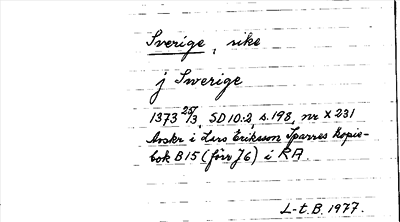 Sverige, rike
j Swerige
1373 25/3, SD 10:2, s. 198, nr X 231
Avskr i Lars Eriksson Sparres kopie-
bok B 15 (förr J 6) i RA.
L-t. B. 1977.